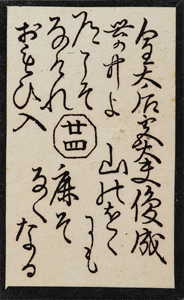 皇太后宮大夫俊成
世の中よ
道こそ
なけれ
おもひ入
山のおく
にも
鹿そ
なく
なる
廿四